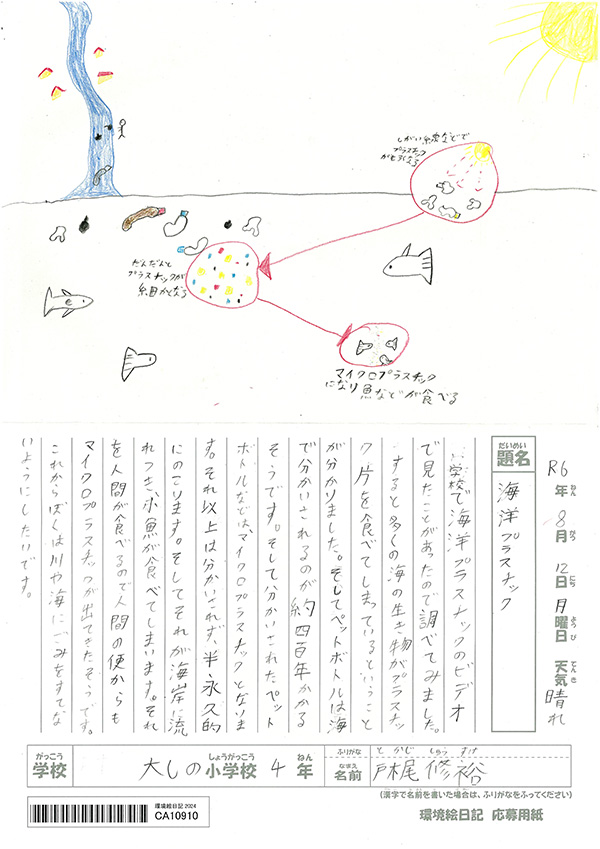 しがい線などで
プラスチック
がもろくなる
だんだんと
プラスチックが
細かくなる
マイクロプラスチック
になり魚などが食べる
R6年ねん 8月がつ 12日にち 月曜日ようび 天気てんき 晴れ
だいめい
題名
海洋プラスチック
学校で海洋プラスチックのビデオ
で見たことがあったので調べてみました。
すると多くの海の生き物がプラスチッ
ク片を食べてしまっているということ
が分かりました。そしてペットボトルは海
で分かいされるのが約四百年かかる
そうです。そして分かいされたペット
ボトルなどは、マイクロプラスチックとなりま
す。それ以上は分かいされず、半永久的
にのこります。そしてそれが海岸に流
れつき、小魚が食べてしまいます。それ
を人間が食べるので人間の便からも
マイクロプラスチックが出てきたそうです。
これからぼくは川や海にごみをすてな
いようにしたいです。
がっこう
学校
大しの小学校しょうがっこう 4年ねん
ふりがな
とかじ しゅうすけ
なまえ
名前
戸梶尾修裕
(漢字で名前を書いた場合は、ふりがなをふってください)
環境絵日記 2024
CA10910
環境絵日記 応募用紙